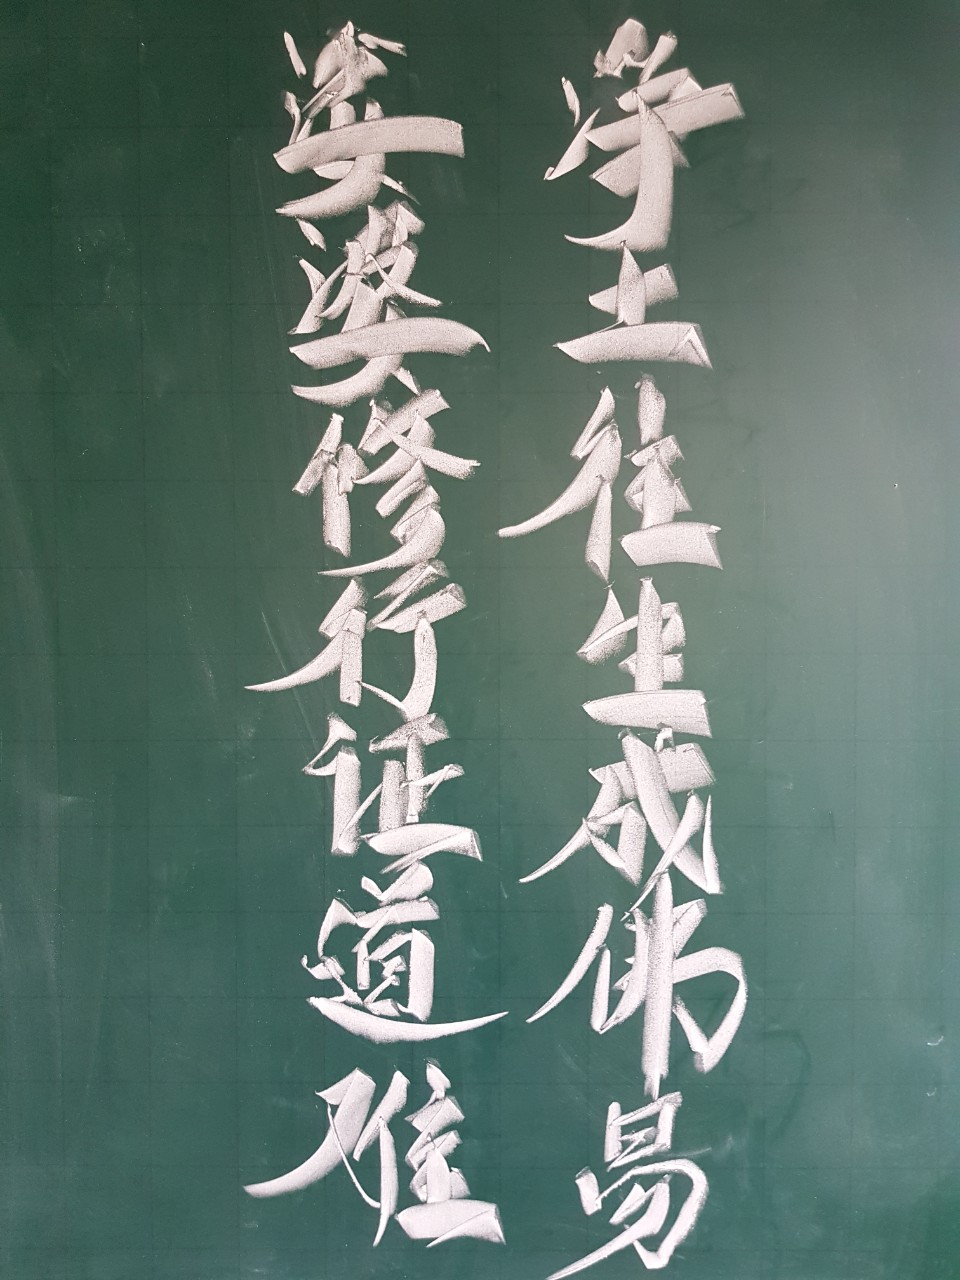 净土往生成佛易
娑婆修行证道难